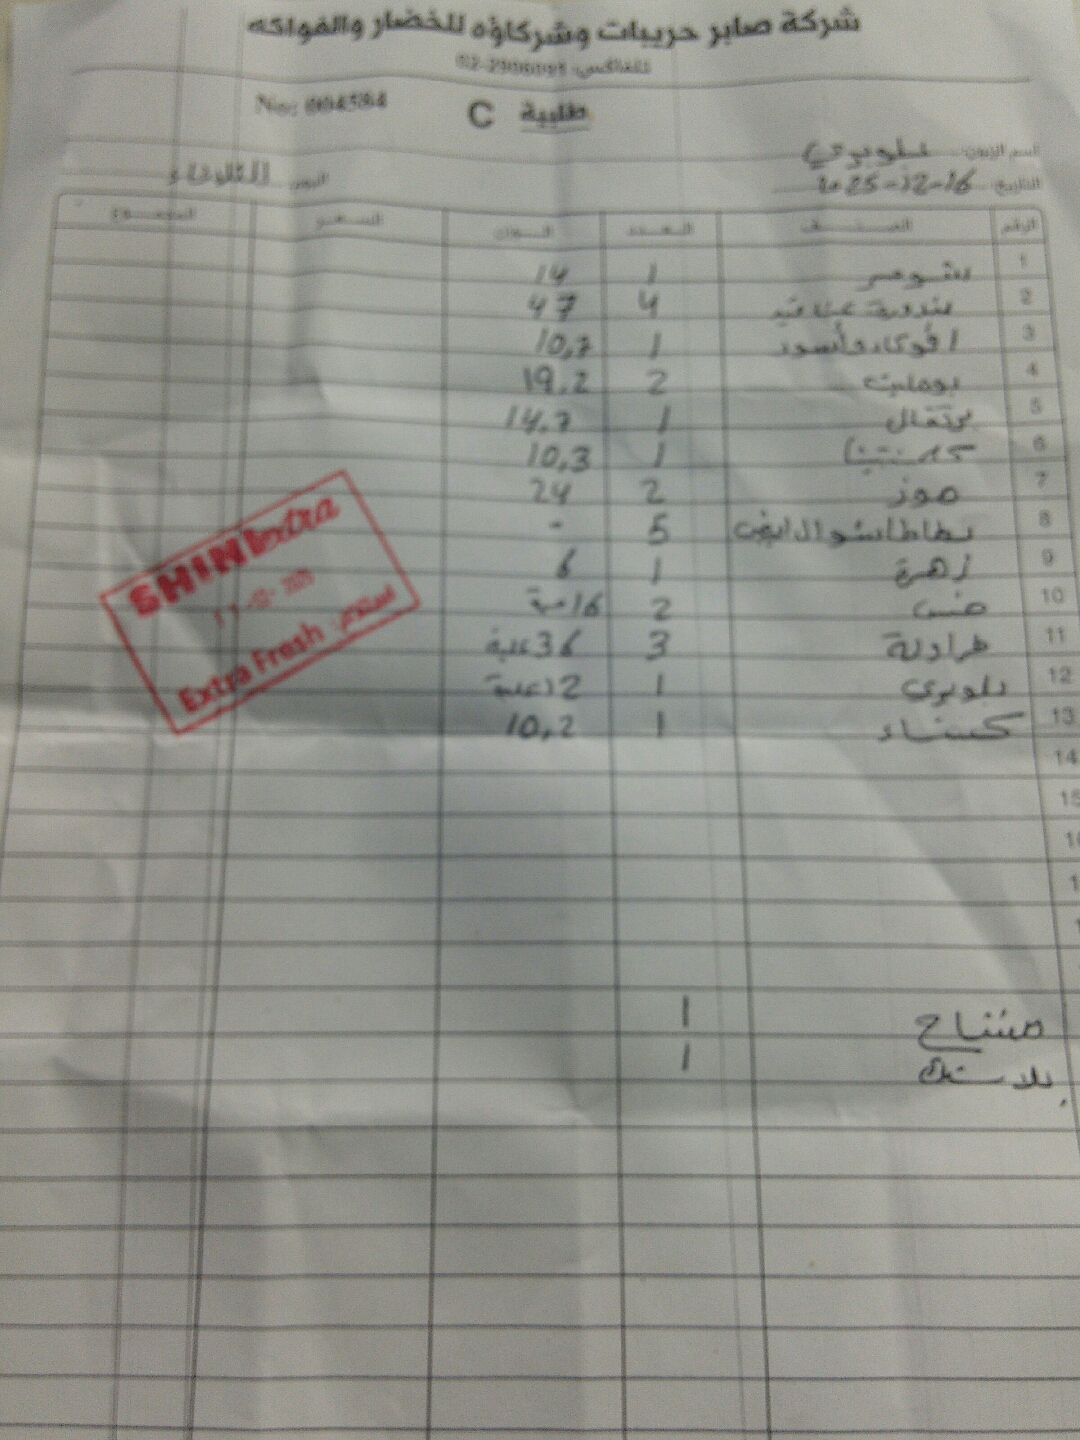 شركة صابر حريبات وشركاؤه للخضار والفواكه
تلفاكس:
No:
طلبية C
اسم الزبون:
اليوم: الثلاثاء
التاريخ: 2025-12-16
الرقم الصنف العدد الوزن السعر المجموع
1 شومر 1 14
2 بندورة عناقيد 4 47
3 افوكادو أسود 1 10,7
4 بوملیت 2 19.2
5 برتقال 1 14.7
6 كلمنتينا 1 10,3
7 موز 2 24
8 بطاطا شوال ابيض 5 -
9 زهرة 1 6
10 خس 2 16 حبة
11 3 36 علبة
12 بلوبري 1 12 علبة
13 كستناء 1 10,2
14
15
مشتاح 1
بلاستك 1
SHINExtra
Extra Fresh